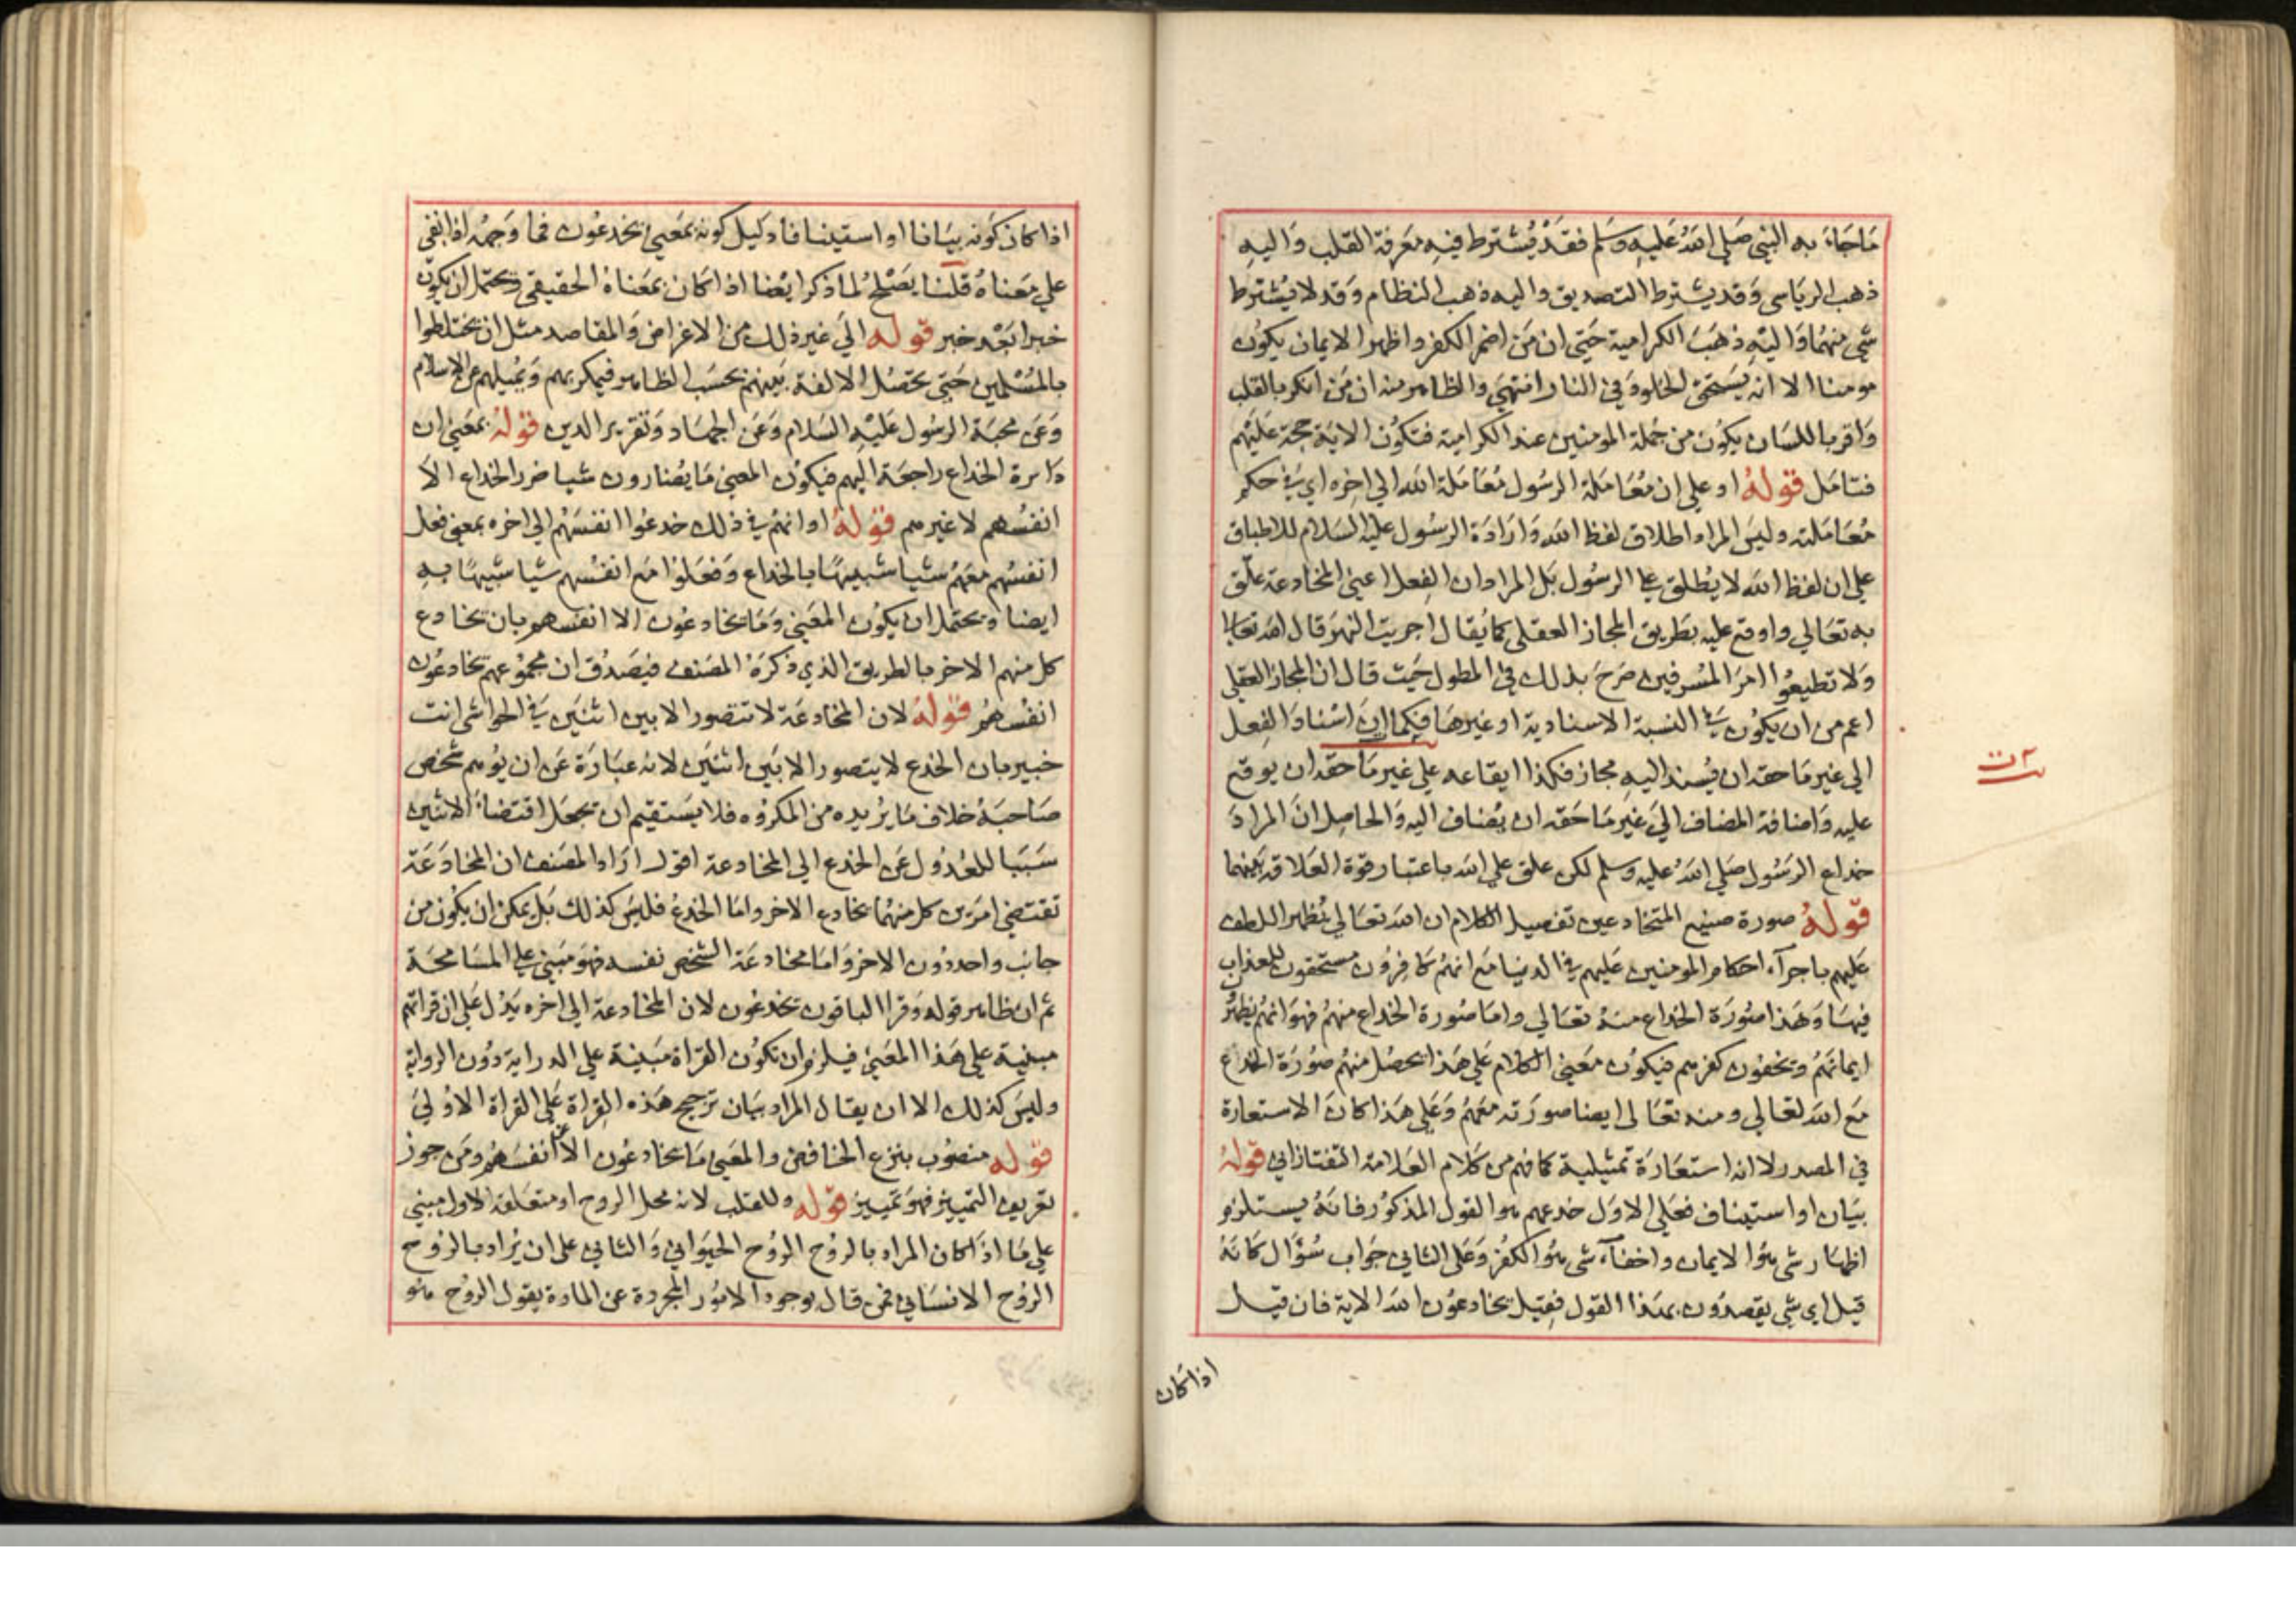 ما جاء به النبي صلي الله عليه وسلم فقد يُشترط فيه معرفة القلب واليه
ذهب الرياسى وقد يشترط التصديق واليه ذهب النظام وقد لا يُشترط
شي منهما واليه ذهب الكرامية حتي ان من اضمر الكفر واظهر الايمان يكون
مومنا الا انه يستحق الخلود في النار انتهي والظاهر منه ان من انكر بالقلب
واقر باللسان يكون من جملة المومنين عند الكرامية فتكون الاية حجة عليهم
فتامل قوله او علي ان معاملة الرسول معاملة الله الي اخره اي في حكم
معاملته وليس المراد اطلاق لفظ الله وارادة الرسول عليه السلام للاطباق
علي ان لفظ الله لا يُطلق علي الرسول بل المراد ان الفعل اعني المخادعة علق
به تعالي واوقع عليه بطريق المجاز العقلى كما يُقال اجريت النهر قال الله تعالي
ولا تطيعوا امر المسرفين صرح بذلك في المطول حيث قال ان المجاز العقلي
اعم من ان يكون في النسبة الاسنادية او غيرها فكما ان اسناد الفعل
الي غير ما حقه ان يُسند اليه مجاز فكذا ايقاعه علي غير ما حقه ان يوقع
عليه واضافة المضاف الي غير ما حقه ان يُضاف اليه والحاصل ان المراد
خداع الرسول صلي الله عليه وسلم لكن علق علي الله باعتبار قوة العلاقة بينهما
قوله صورة صنيع المتخادعين تفصيل الكلام ان الله تعالي يُظهر اللطف
عليهم باجرآء احكام المومنين عليهم في الدنيا مع انهم كافرون مستحقون للعذاب
فيها وهذا صورة الخداع منه تعالي واما صورة الخداع منهم فهو انهم يظهر
ايمانهم ويخفون كفرهم فيكون معني الكلام علي هذا يحصل منهم صورة الخداع
مع الله تعالي ومنه تعالى ايضا صورته معهم وعلي هذا كان الاستعارة
في المصدر لا انه استعارة تمثيلية كما فهم من كلام العلامة التفتازاني قوله
بيان او استيناف فعلي الاول خدعهم هو القول المذكور فانه يستلزم
اظهار شي هو الايمان واخفآء شي هو الكفر وعلي الثاني جواب سُؤال كانه
قيل اي شي يقصدون بهذا القول فقيل يخادعون الله الاية فان قيل
اذا كان
اذا كان كونه بيانا او استينافا دليل كونه بمعني يخدعون فما وجهه اذا بقي
علي معناه قلنا يصلح لما ذكر ايضا اذا كان بمعناه الحقيقي ويحتمل ان يكون
خبرا بعد خبر قوله الي غير ذلك من الاغراض والمقاصد مثل ان يختلطوا
بالمسلمين حتي يحصل الالفة بينهم بحسب الظاهر فيمكر بهم ويميلهم عن الاسلام
وعن محبة الرسول عليه السلام وعن الجهاد وتقرير الدين قوله بمعني ان
دايرة الخداع راجعة اليهم فيكون المعني ما يُضارون شيا ضرر الخداع الا
انفسهم لا غيرهم قوله او انهم في ذلك خدعوا انفسهم الي اخره بمعني فعل
انفسهم معهم شيا شبيها بالخداع وفعلوا مع انفسهم شيا شبيها به
ايضا ويحتمل ان يكون المعني وما يخادعون الا انفسهم بان يخادع
كل منهم الاخر بالطريق الذي ذكره المصنف فيصدق ان مجموعهم يخادعون
انفسهم قوله لان المخادعة لا تتصور الا بين اثنين في الحواشي انت
خبير بان الخدع لا يتصور الا بين اثنين لانه عبارة عن ان يُوهم شخص
صاحبه خلاف ما يريده من المكروه فلا يستقيم ان يجعل اقتضاء الاثنين
سببا للعدول عن الخدع الي المخادعة اقول اراد المصنف ان المخادعة
تقتضي امرين كل منهما يخادع الاخر واما الخدع فليس كذلك بل يمكن ان يكون من
جانب واحد دون الاخر واما مخادعة الشخص نفسه فهو مبني علي المسامحة
ثم ان ظاهر قوله وقرا الباقون يخدعون لان المخادعة الي اخره يدل علي ان قراتهم
مبنية علي هذا المعني فيلزم ان تكون القراة مبنية علي الدراية دون الرواية
وليس كذلك الا ان يقال المراد بيان ترجيح هذه القراة علي القراة الاولي
قوله منصوب بنزع الخافض والمعني ما يخادعون الا عن انفسهم ومن جوز
تعريف التمييز فهو تمييز قوله وللقلب لانه محل الروح او متعلقه الاول مبني
علي ما اذا كان المراد بالروح الروح الحيواني والثاني على ان يُراد بالروح
الروح الانساني فمن قال بوجود الامور المجردة عن المادة يقول الروح هو